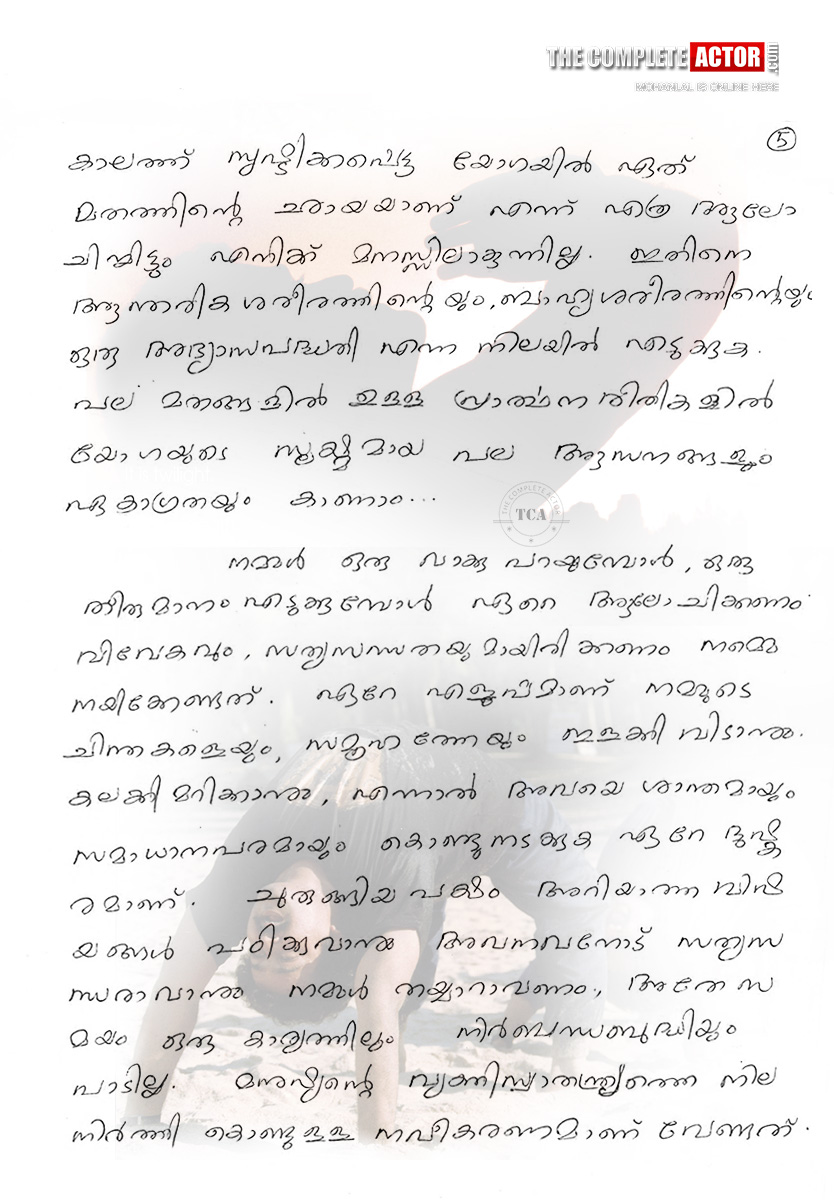 THE COMPLETE ACTOR.COM
MOHANLAL IS ONLINE HERE
5
കാലത്ത് സൃഷ്ടിക്കപ്പെട്ട യോഗയിൽ ഏത്
മതത്തിന്റെ ഛായയാണ് എന്ന് എത്ര ആലോ
ചിച്ചിട്ടും എനിക്ക് മനസ്സിലാകുന്നില്ല. ഇതിനെ
ആന്തരിക ശരീരത്തിന്റെയും, ബാഹ്യശരീരത്തിന്റെയും
ഒരു അഭ്യാസപദ്ധതി എന്ന നിലയിൽ എടുക്കുക.
പല മതങ്ങളിൽ ഉള്ള പ്രാർത്ഥന രീതികളിൽ
യോഗയുടെ സൂക്ഷ്മമായ പല ആസനങ്ങളും
ഏകാഗ്രതയും കാണാം...
THE COMPLETE ACTOR
TCA
നമ്മൾ ഒരു വാക്കു പറയുമ്പോൾ, ഒരു
തീരുമാനം എടുക്കുമ്പോൾ ഏറെ ആലോചിക്കണം
വിവേകവും, സത്യസന്ധതയുമായിരിക്കണം നമ്മെ
നയിക്കേണ്ടത്. ഏറേ എളുപ്പമാണ് നമ്മുടെ
ചിന്തകളെയും, സമൂഹത്തേയും ഇളക്കി വിടാനും.
കലക്കി മറിക്കാനും, എന്നാൽ അവയെ ശാന്തമായും
സമാധാനപരമായും കൊണ്ടുനടക്കുക ഏറേ ദുഷ്ക
രമാണ്. ചുരുങ്ങിയ പക്ഷം അറിയാത്ത വിഷ
യങ്ങൾ പഠിക്കുവാനും അവനവനോട് സത്യസ
ന്ധരാവാനും നമ്മൾ തയ്യാറാവണം, അതേ സ
മയം ഒരു കാര്യത്തിലും നിർബന്ധബുദ്ധിയും
പാടില്ല. മനുഷ്യന്റെ വ്യക്തിസ്വാതന്ത്ര്യത്തെ നില
നിർത്തി കൊണ്ടുള്ള നവീകരണമാണ് വേണ്ടത്.